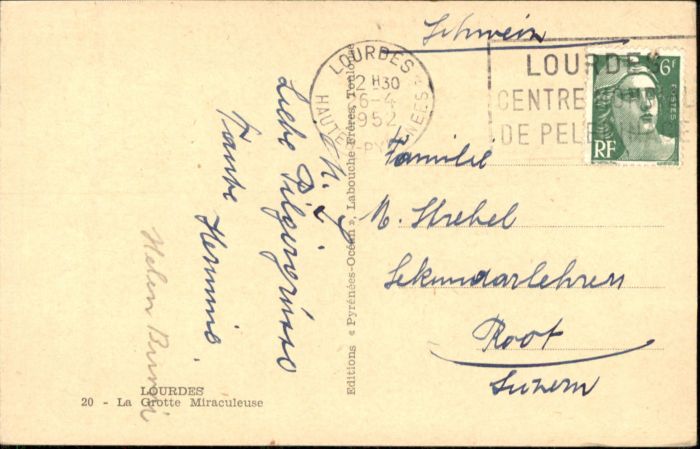 Schweiz
LOURDES
12 H30
6-4
1952
HAUTES-PYRÉNÉES
LOURDES
CENTRE MONDIAL
DE PELERINAGE
6F
POSTES
RF
Liebe Pilgergrüsse
Tante
Hermine.
Helen
LOURDES
20 - La Grotte Miraculeuse
Editions « Pyrénées-Océan », Labouche Frères, Toulouse
Familie
N. Strebel
Sekundarlehrer
Root
Luzern